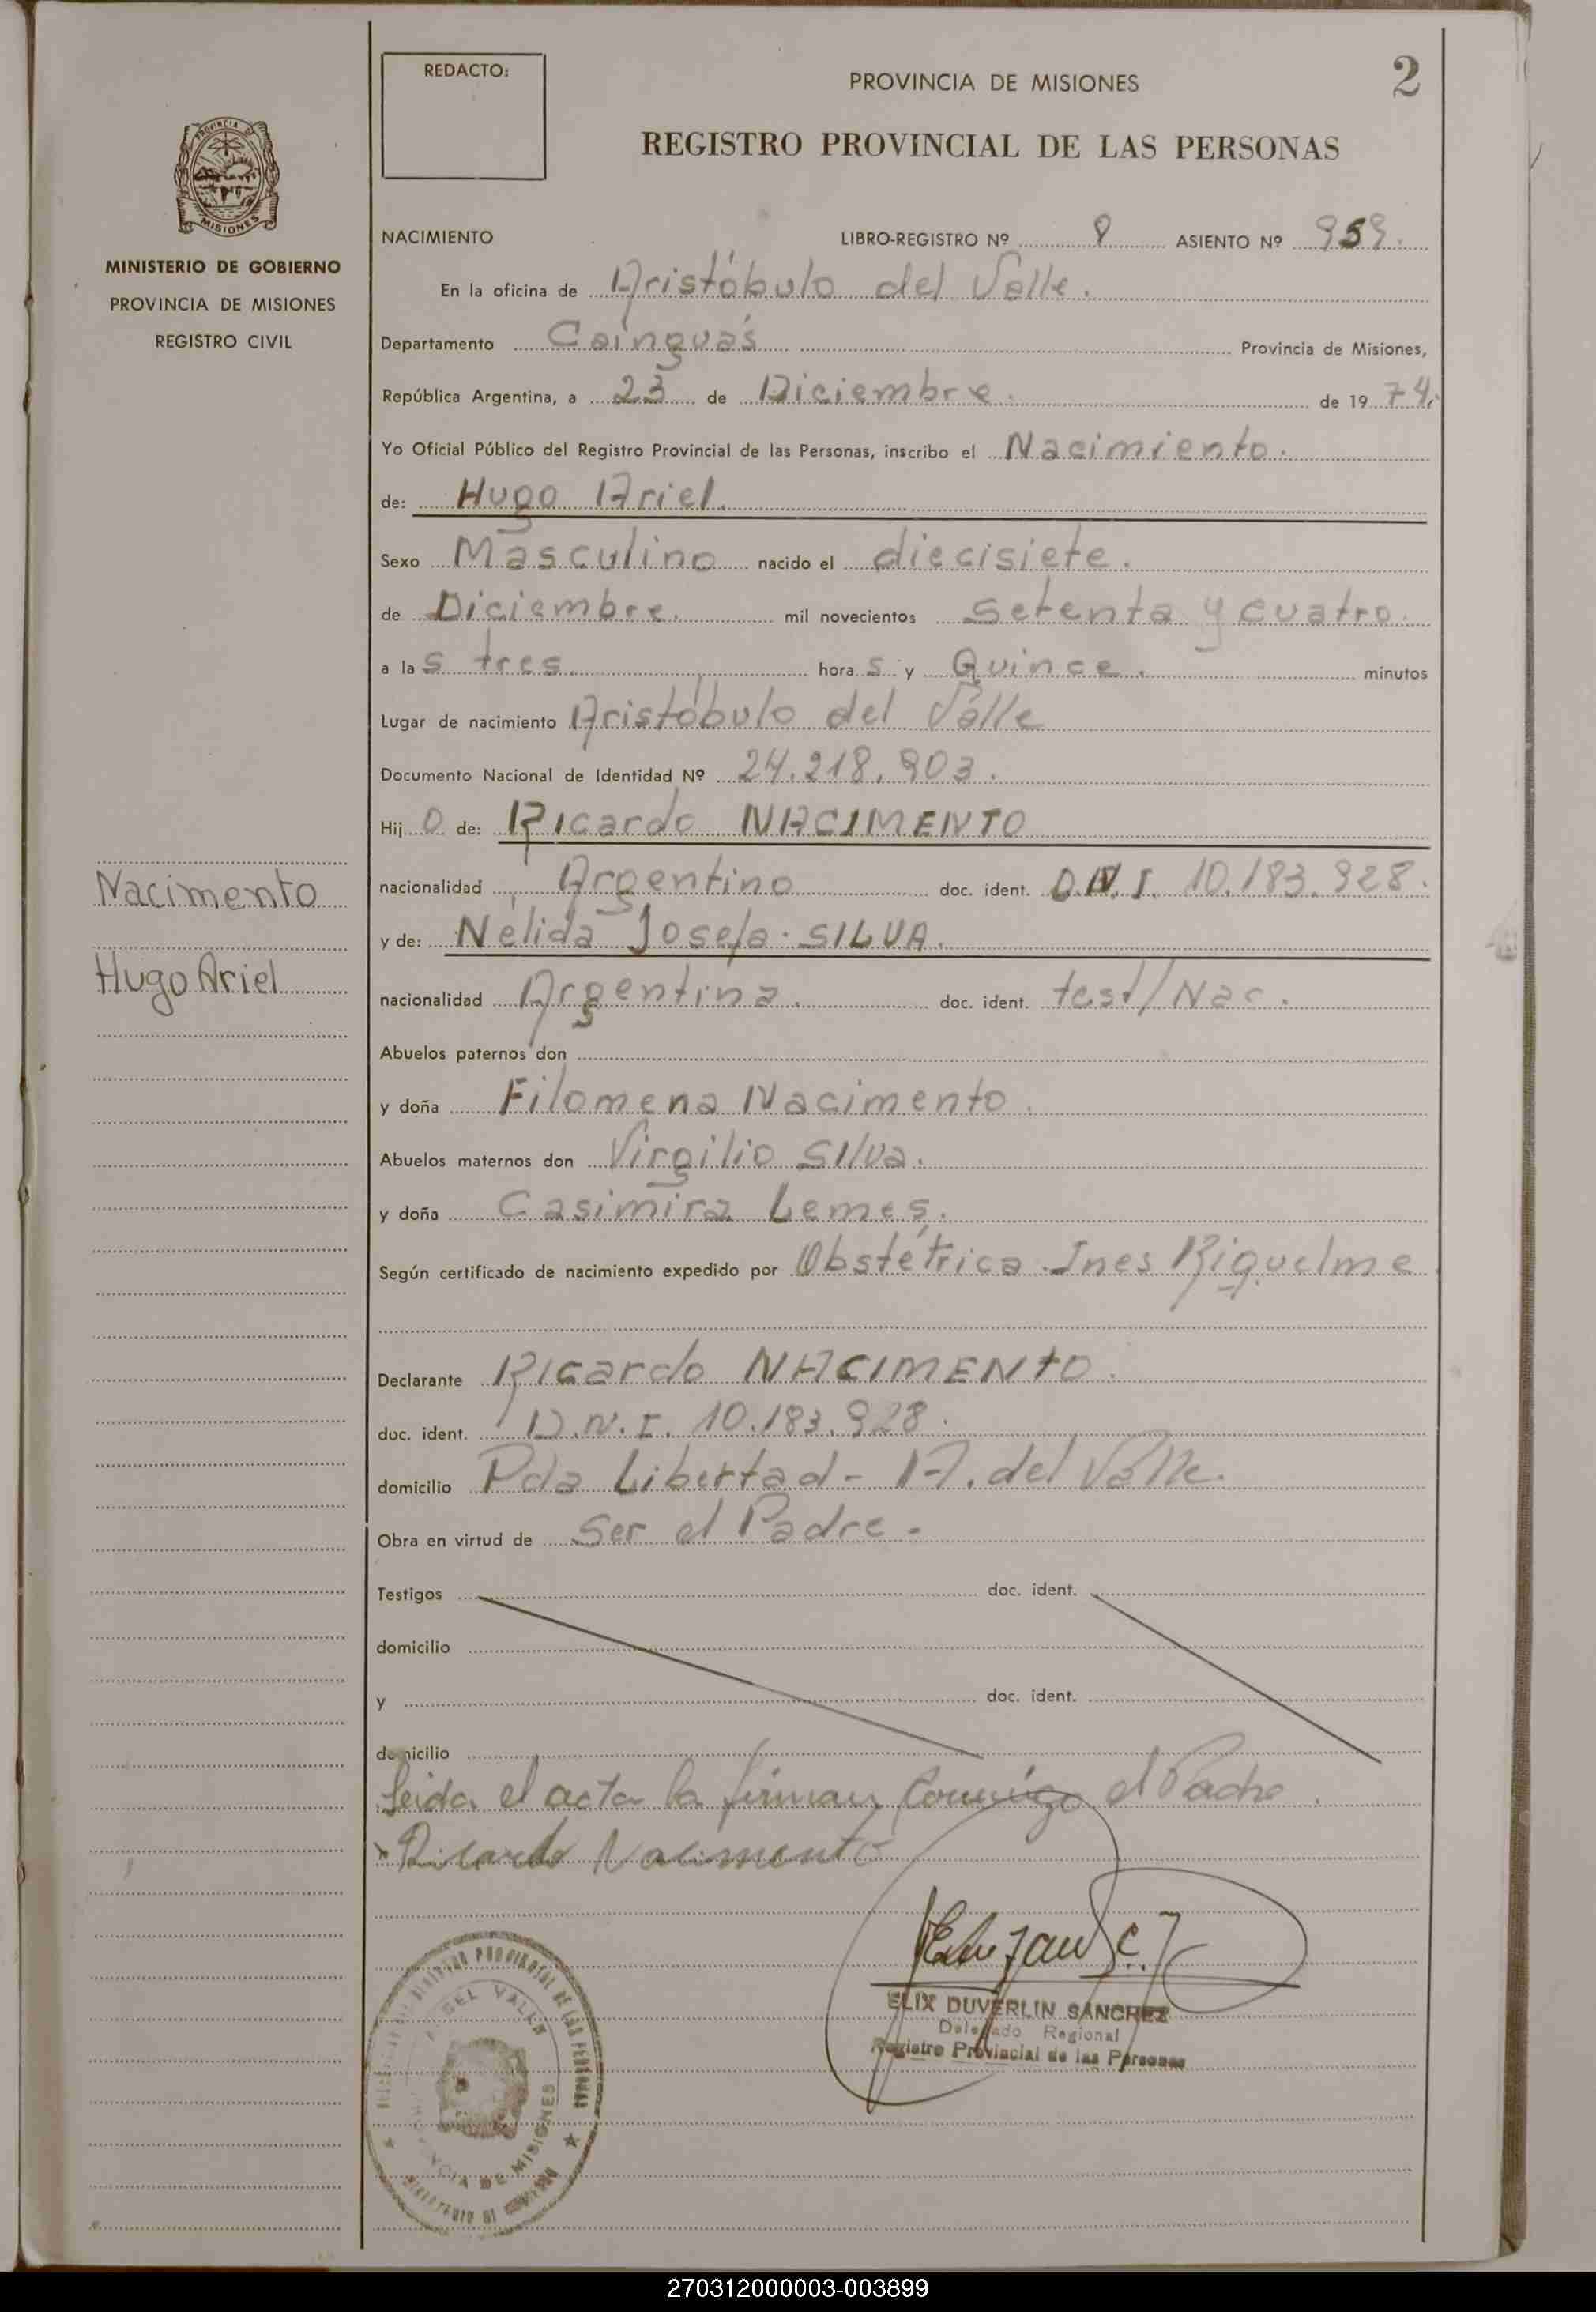 REDACTO:
PROVINCIA DE MISIONES
2
REGISTRO PROVINCIAL DE LAS PERSONAS
PROVINCIA DE
MISIONES
MINISTERIO DE GOBIERNO
PROVINCIA DE MISIONES
REGISTRO CIVIL
NACIMIENTO LIBRO-REGISTRO Nº 8 ASIENTO Nº 959.
En la oficina de Aristóbulo del Valle.
Departamento Cainguás Provincia de Misiones,
República Argentina, a 23 de Diciembre. de 19 74.
Yo Oficial Público del Registro Provincial de las Personas, inscribo el Nacimiento.
de: Hugo Ariel.
Sexo Masculino nacido el diecisiete.
de Diciembre. mil novecientos setenta y cuatro.
a la s tres. hora s y Quince. minutos
Lugar de nacimiento Aristóbulo del Valle
Documento Nacional de Identidad Nº 24.218.903.
Hij o de: Ricardo NACIMENTO
nacionalidad Argentino doc. ident. D.N.I. 10.183.928.
y de: Nélida Josefa. SILVA.
nacionalidad Argentina. doc. ident. test/Nac.
Abuelos paternos don
y doña Filomena Nacimento.
Abuelos maternos don Virgilio Silva.
y doña Casimira Lemes.
Según certificado de nacimiento expedido por Obstétrica Ines Riquelme
Declarante Ricardo NACIMENTO.
doc. ident. D.N.I. 10.183.928.
domicilio Pda Libertad - A. del Valle.
Obra en virtud de Ser el Padre.-
Testigos doc. ident.
domicilio
y doc. ident.
domicilio
Leida el acta la firman Conmigo el Padre.
Ricardo Nacimento
Nacimento
Hugo Ariel
ELIX DUVERLIN SANCHEZ
Delegado Regional
Registro Provincial de las Personas
PROVINCIAL DE LAS PERSONAS
DEL VALLE
DE MISIONES
270312000003-003899